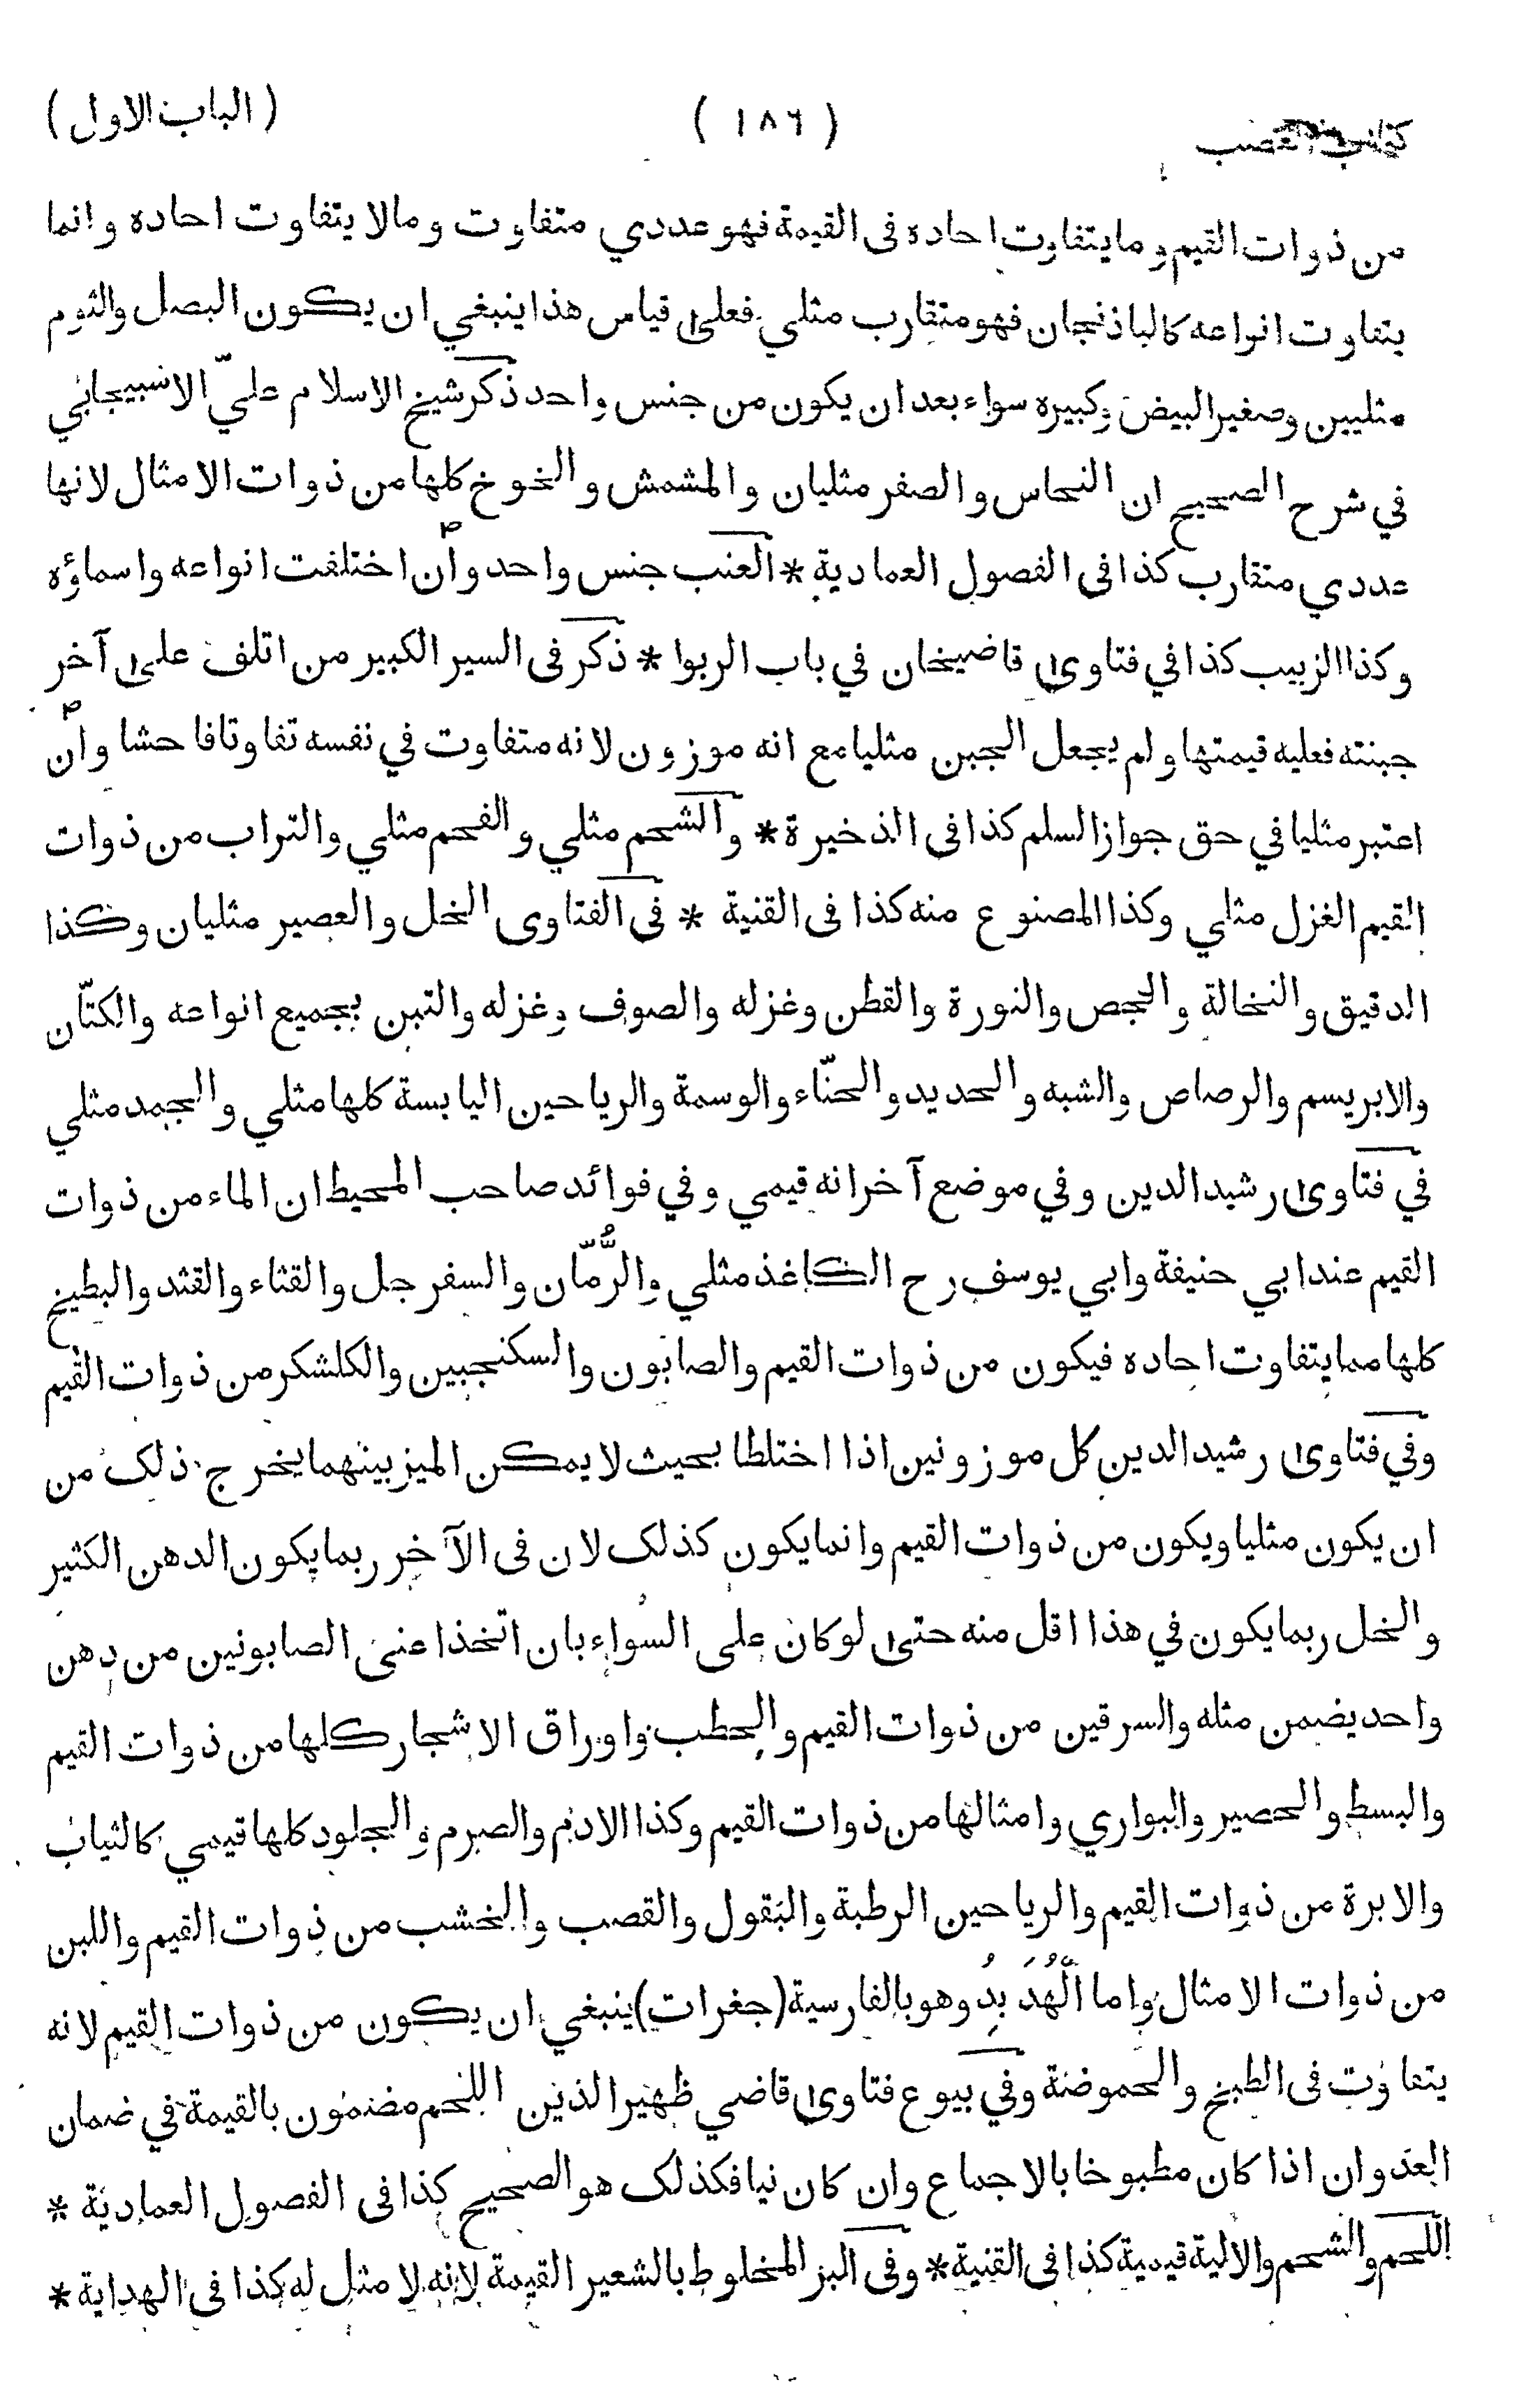 كتاب الغصب ( ١٨٦ ) ( الباب الاول )
من ذوات القيم وما يتفاوت احاده فى القيمة فهو عددي متفاوت ومالا يتفاوت احاده وانما
يتفاوت انواعه كالباذنجان فهو متقارب مثلي فعلى قياس هذا ينبغي ان يكون البصل والثوم
مثليين وصغير البيض وكبيره سواء بعد ان يكون من جنس واحد ذكر شيخ الاسلام عليّ الاسبيجابي
في شرح الصحيح ان النحاس والصفر مثليان والمشمش والخوخ كلها من ذوات الامثال لانها
عددي متقارب كذا فى الفصول العمادية * العنب جنس واحد وان اختلفت انواعه واسماؤه
وكذا الزبيب كذا في فتاوى قاضيخان في باب الربوا * ذكر فى السير الكبير من اتلف على آخر
جبنته فعليه قيمتها ولم يجعل الجبن مثليا مع انه موزون لانه متفاوت في نفسه تفاوتا فاحشا وان
اعتبر مثليا في حق جواز السلم كذا فى الذخيرة * والشحم مثلي والفحم مثلي والتراب من ذوات
القيم الغزل مثلي وكذا المصنوع منه كذا فى القنية * فى الفتاوى الخل والعصير مثليان وكذا
الدقيق والنخالة والجص والنورة والقطن وغزله والصوف وغزله والتبن بجميع انواعه والكتّان
والابريسم والرصاص والشبه والحديد والحنّاء والوسمة والرياحين اليابسة كلها مثلي والجمد مثلي
في فتاوى رشيد الدين وفي موضع آخر انه قيمي وفي فوائد صاحب المحيط ان الماء من ذوات
القيم عند ابي حنيفة وابي يوسف رح الكاغذ مثلي والرُّمّان والسفرجل والقثاء والقثد والبطيخ
كلها مما يتفاوت احاده فيكون من ذوات القيم والصابون والسكنجبين والكلشكر من ذوات القيم
وفي فتاوى رشيد الدين كل موزونين اذا اختلطا بحيث لا يمكن الميز بينهما يخرج ذلك من
ان يكون مثليا ويكون من ذوات القيم وانما يكون كذلك لان فى الآخر ربما يكون الدهن الكثير
والخل ربما يكون في هذا اقل منه حتى لو كان على السواء بان اتخذا عنى الصابونين من دهن
واحد يضمن مثله والسرقين من ذوات القيم والحطب واوراق الاشجار كلها من ذوات القيم
والبسط والحصير والبواري وامثالها من ذوات القيم وكذا الادم والصرم والجلود كلها قيمي كالثياب
والابرة من ذوات القيم والرياحين الرطبة والبقول والقصب والخشب من ذوات القيم واللبن
من ذوات الامثال واما الْهُدَبِدُ وهو بالفارسية (جغرات) ينبغي ان يكون من ذوات القيم لانه
يتفاوت فى الطبخ والحموضة وفي بيوع فتاوى قاضي ظهير الدين اللحم مضمون بالقيمة في ضمان
العدوان اذا كان مطبوخا بالاجماع وان كان نيا فكذلك هو الصحيح كذا فى الفصول العمادية *
اللحم والشحم والالية قيمية كذا فى القنية * وفى البر المخلوط بالشعير القيمة لانه لا مثل له كذا فى الهداية *